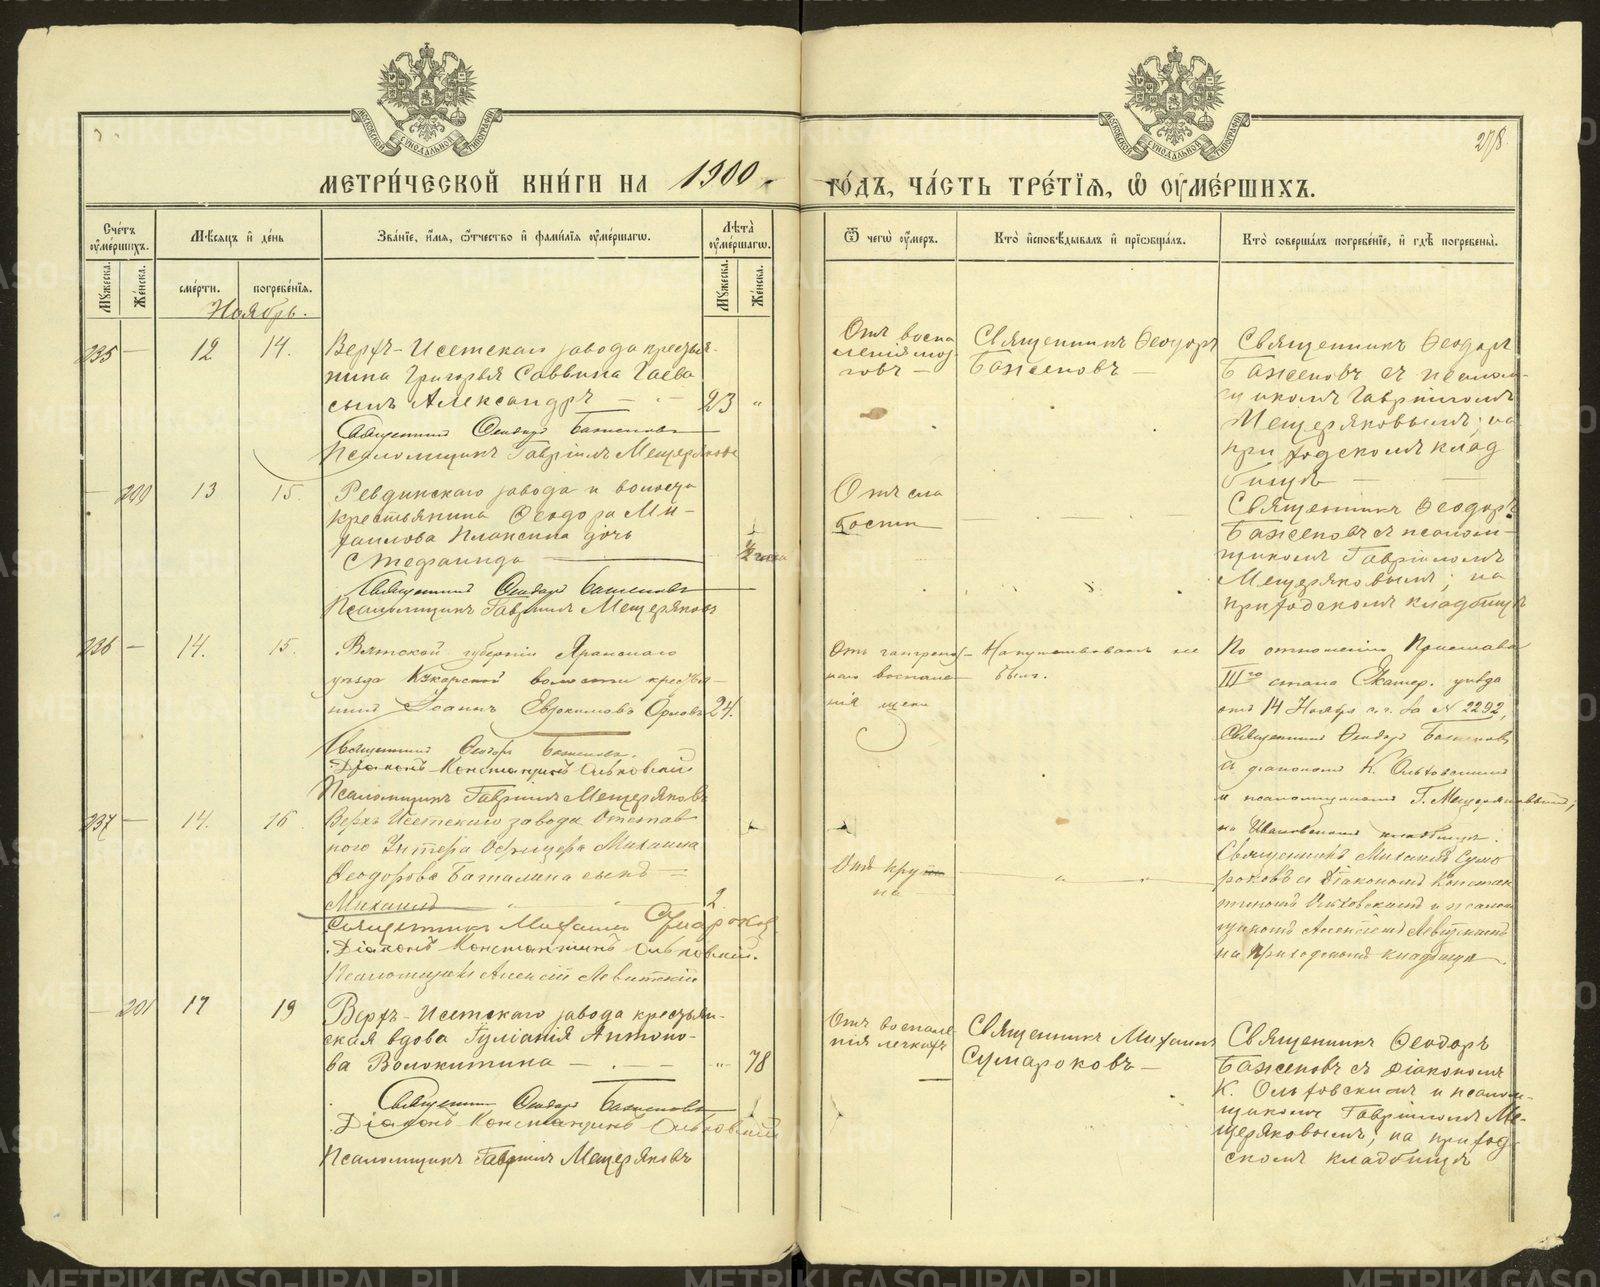 278
МОСКОВСКОЙ СѴНОДАЛЬНОЙ ТИПОГРАФІИ
МОСКОВСКОЙ СѴНОДАЛЬНОЙ ТИПОГРАФІИ
МЕТРИ́ЧЕСКОЙ КНИ́ГИ НА 1900 ГО́ДЪ, ЧА́СТЬ ТРЕ́ТІѦ, Ѡ҆ ОУ҆МЕ́РШИХЪ.
Сче́тъ оу҆ме́ршихъ.
Мꙋ́жеска.
Же́нска.
Мѣ́сяцъ и҆ де́нь
сме́рти.
погребе́нїѧ.
Зва́нїе, и҆́мѧ, ѻ҆́тчество и҆ фами́лїѧ оу҆ме́ршагѡ.
Лѣ́та оу҆ме́ршагѡ.
Мꙋ́жеска.
Же́нска.
Ѿ чегѡ̀ оу҆́меръ.
Кто̀ и҆сповѣ́дывалъ и҆ прїѡбща́лъ.
Кто̀ соверша́лъ погребе́нїе, и҆ гдѣ̀ погребены̀.
Ноябрь.
235 — 12 14.
Верхъ-Исетскаго завода крестья-
нина Григорья Саввина Гаева
сынъ Александръ — 23 "
Священникъ Ѳеодоръ Баженовъ
Псаломщикъ Гавріилъ Мещеряковъ
Отъ воспа
ленія моз
говъ —
Священникъ Ѳеодоръ
Баженовъ —
Священникъ Ѳеодоръ
Баженовъ съ псалом-
щикомъ Гавріиломъ
Мещеряковымъ; на
приходскомъ клад
бищѣ —
— 200 13 15.
Ревдинскаго завода и волости
крестьянина Ѳеодора Ми-
хаилова дочь
Стефанида
Священникъ Ѳеодоръ Баженовъ
Псаломщикъ Гавріилъ Мещеряковъ
Отъ сла
бости
Священникъ Ѳеодоръ
Баженовъ съ псалом-
щикомъ Гавріиломъ
Мещеряковымъ; на
приходскомъ кладбищѣ
236 — 14. 15.
Вятской губерніи Яранскаго
уѣзда Кукарской волости крестья-
нинъ Іоаннъ Евдокимовъ Орловъ 24.
Священникъ Ѳеодоръ Баженовъ.
Діаконъ Константинъ Ольховскій
Псаломщикъ Гавріилъ Мещеряковъ
Отъ гангреноз-
наго воспале-
нія щеки
Напутствованъ не
былъ.
По отношенію Пристава
IIIго стана Екатер. уѣзда
отъ 14 Ноября с. г. за № 2292,
Священникъ Ѳеодоръ Баженовъ
съ діакономъ К. Ольховскимъ
и псаломщикомъ Г. Мещеряковымъ,
на Ивановскомъ кладбищѣ.
237 — 14. 16
Верхъ Исетскаго завода Отстав
ного Унтеръ Офицера Михаила
Ѳеодорова Баталина сынъ —
Михаилъ 2
Священникъ Михаилъ Сумароковъ
Діаконъ Константинъ Ольховскій.
Псаломщикъ Алексій Левитскій
Отъ круп
па —
Священникъ Михаилъ Сумо
роковъ съ Діакономъ Констан
тиномъ Ольховскимъ и псалом
щикомъ Алексіемъ Левитскимъ
на приходскомъ кладбищѣ.
— 201 17 19
Верхъ-Исетскаго завода крестьян-
ская вдова Іуліанія Антоно-
ва Волокитина — 78
Священникъ Ѳеодоръ Баженовъ
Діаконъ Константинъ Ольховскій
Псаломщикъ Гавріилъ Мещеряковъ
Отъ воспале-
нія легкихъ
Священникъ Михаилъ
Сумароковъ —
Священникъ Ѳеодоръ
Баженовъ съ Діакономъ
К. Ольховскимъ и псалом-
щикомъ Гавріиломъ Ме-
щеряковымъ, на приход-
скомъ кладбищѣ
METRIKI.GASO-URAL.RU